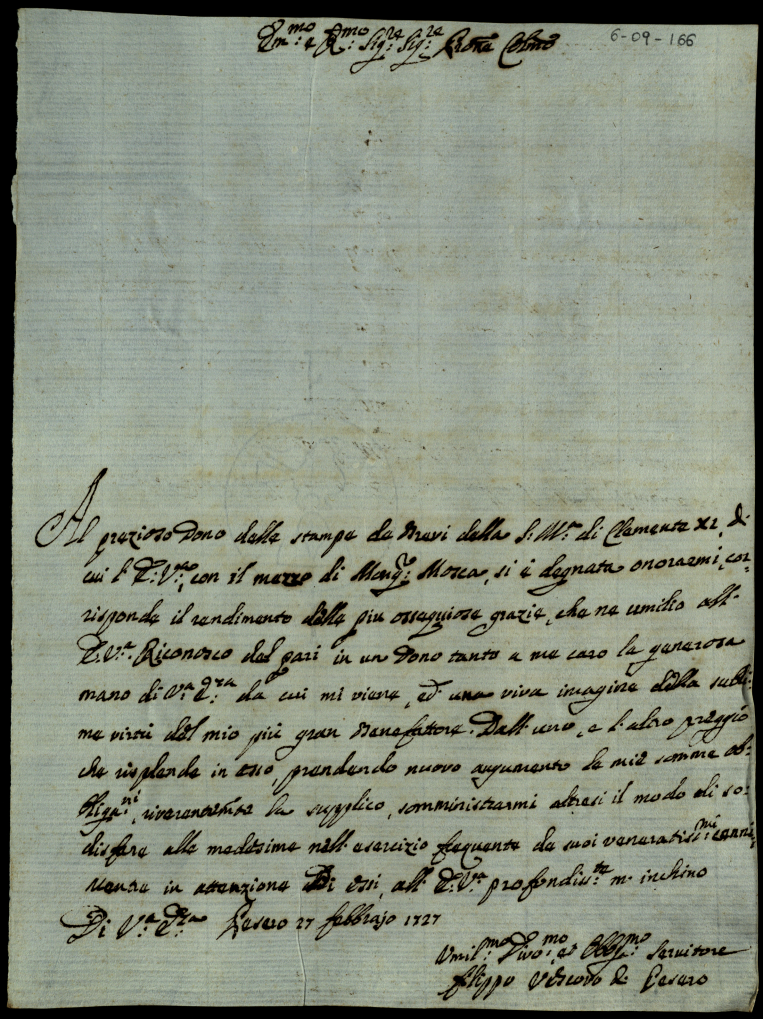 Em.mo e R.mo Sig.re Sig.re Prone Colmo
6-09-166
Al prezioso Dono delle stampe de Brevi della S: M.ria di Clemente XI, di
cui l'E: V.ra, con il mezzo di Monsig.r Mosca, si è degnata onorarmi, cor-
risponde il rendimento delle più ossequiose grazie, che ne umilio all'
E: V.ra Riconosco del pari in un Dono tanto a me caro la generosa
mano di V.ra E.za da cui mi viene, ed una viva imagine della subli-
me virtù del mio più gran Benefattore. Dall'uno, e l'altro preggio
che risplende in esso, prendendo nuovo argumento le mie somme ob-
bligaz.ni, riverentem.te la supplico, somministrarmi altresi il modo di so-
disfare alle medesime nell'esercizio frequente de suoi veneratiss.mi cenni,
mentre in attenzione Di essi, all'E: V.ra profondiss.te m'inchino
Di V.ra E.za Pesaro 27 febbrajo 1727
Umil.mo Divo.mo et Obblg.mo Servitore
Filippo Vescovo di Pesaro